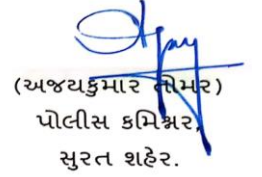 (અજયકુમાર તોમર)
પોલીસ કમિશ્નર,
સુરત શહેર.